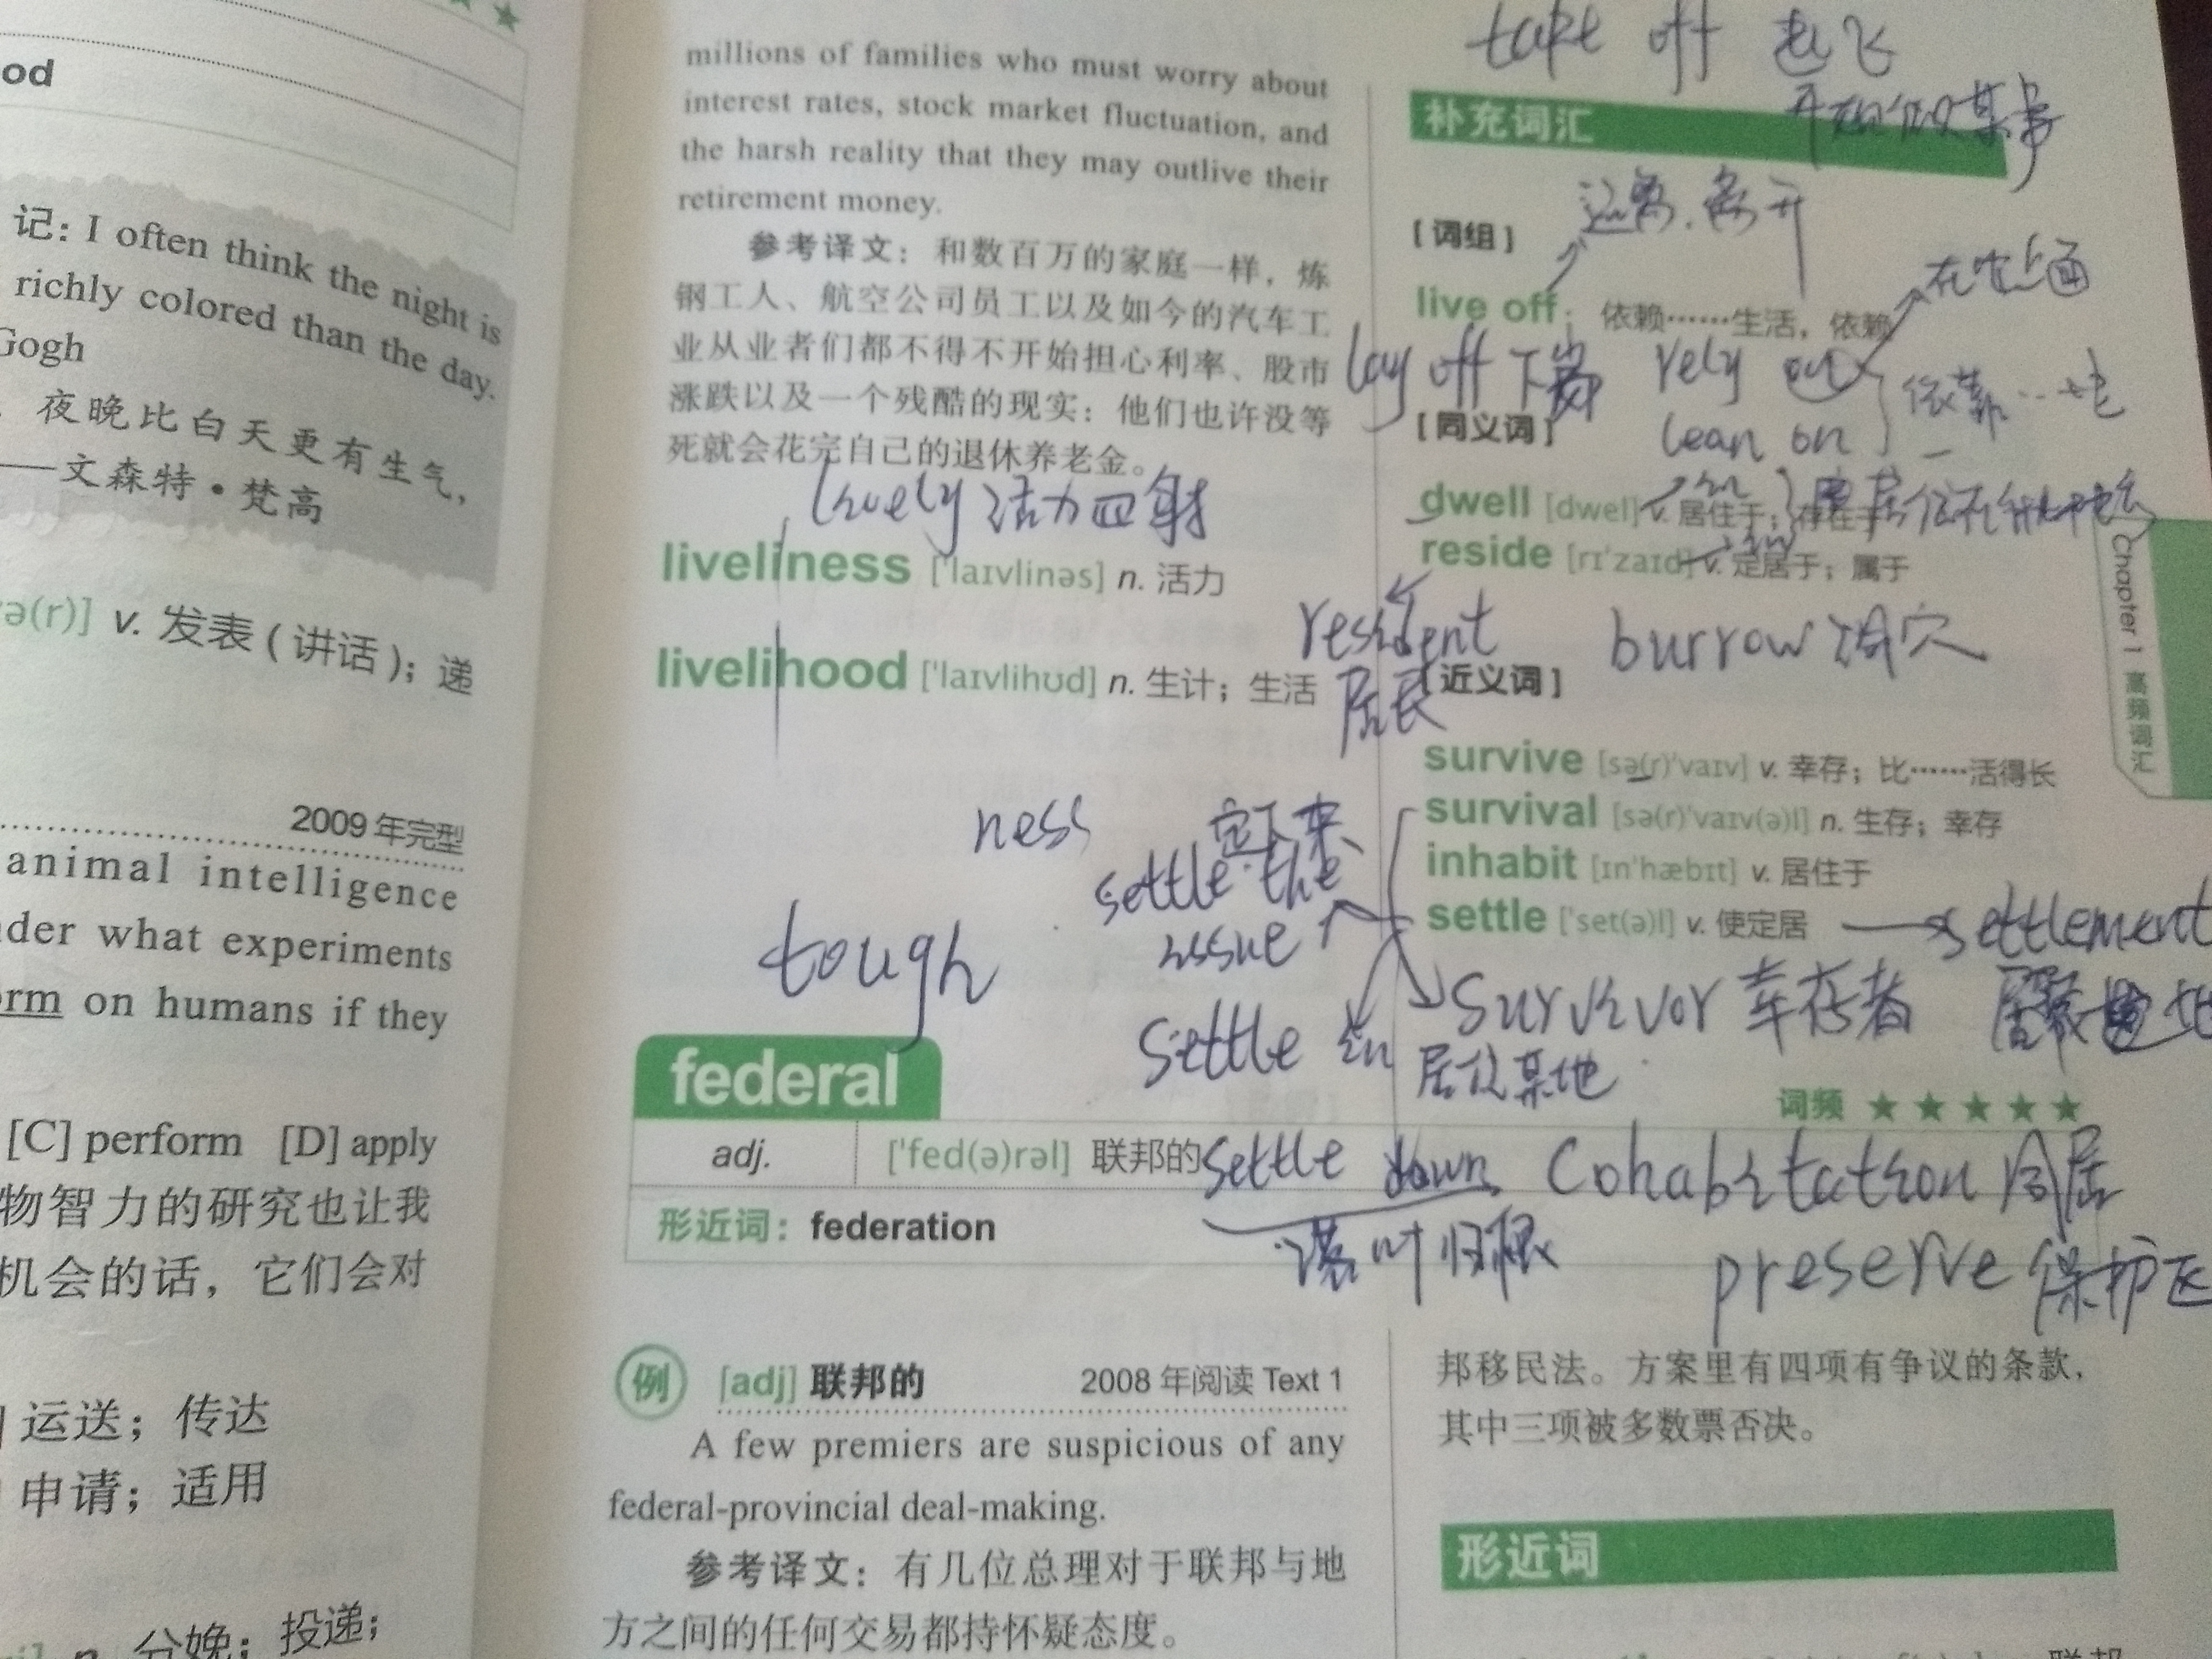 od
记: I often think the night is
richly colored than the day.
Gogh
夜晚比白天更有生气,
——文森特·梵高
ə(r)] v. 发表(讲话); 递
2009 年完型
animal intelligence
der what experiments
orm on humans if they
[C] perform [D] apply
物智力的研究也让我
机会的话, 它们会对
运送; 传达
申请; 适用
n. 分娩; 投递;
millions of families who must worry about
interest rates, stock market fluctuation, and
the harsh reality that they may outlive their
retirement money.
参考译文: 和数百万的家庭一样, 炼
钢工人、航空公司员工以及如今的汽车工
业从业者们都不得不开始担心利率、股市
涨跌以及一个残酷的现实: 他们也许没等
死就会花完自己的退休养老金。
lively 活力四射
liveliness ['laɪvlinəs] n. 活力
livelihood ['laɪvlihʊd] n. 生计; 生活
ness
定下来
settle the
issue
tough
settle in
居住某地
take off 起飞
开始做某事
补充词汇
远离. 离开
[词组]
在它上面
live off: 依赖……生活, 依赖
lay off 下岗 rely on
依靠
[同义词]
lean on
dwell [dwel] v. 居住于; 存在于
reside [rɪ'zaɪd] v. 定居于; 属于
resident
居民
burrow 洞穴
[近义词]
survive [sə(r)'vaɪv] v. 幸存; 比……活得长
survival [sə(r)'vaɪv(ə)l] n. 生存; 幸存
inhabit [ɪn'hæbɪt] v. 居住于
settle ['set(ə)l] v. 使定居 settlement
survivor 幸存者
federal
词频 ★★★★★
adj. ['fed(ə)rəl] 联邦的
settle down cohabitation 同居
形近词: federation
落叶归根
preserve 保护区
例 [adj] 联邦的 2008 年阅读 Text 1
A few premiers are suspicious of any
federal-provincial deal-making.
参考译文: 有几位总理对于联邦与地
方之间的任何交易都持怀疑态度。
邦移民法。方案里有四项有争议的条款,
其中三项被多数票否决。
形近词
Chapter 1 高频词汇